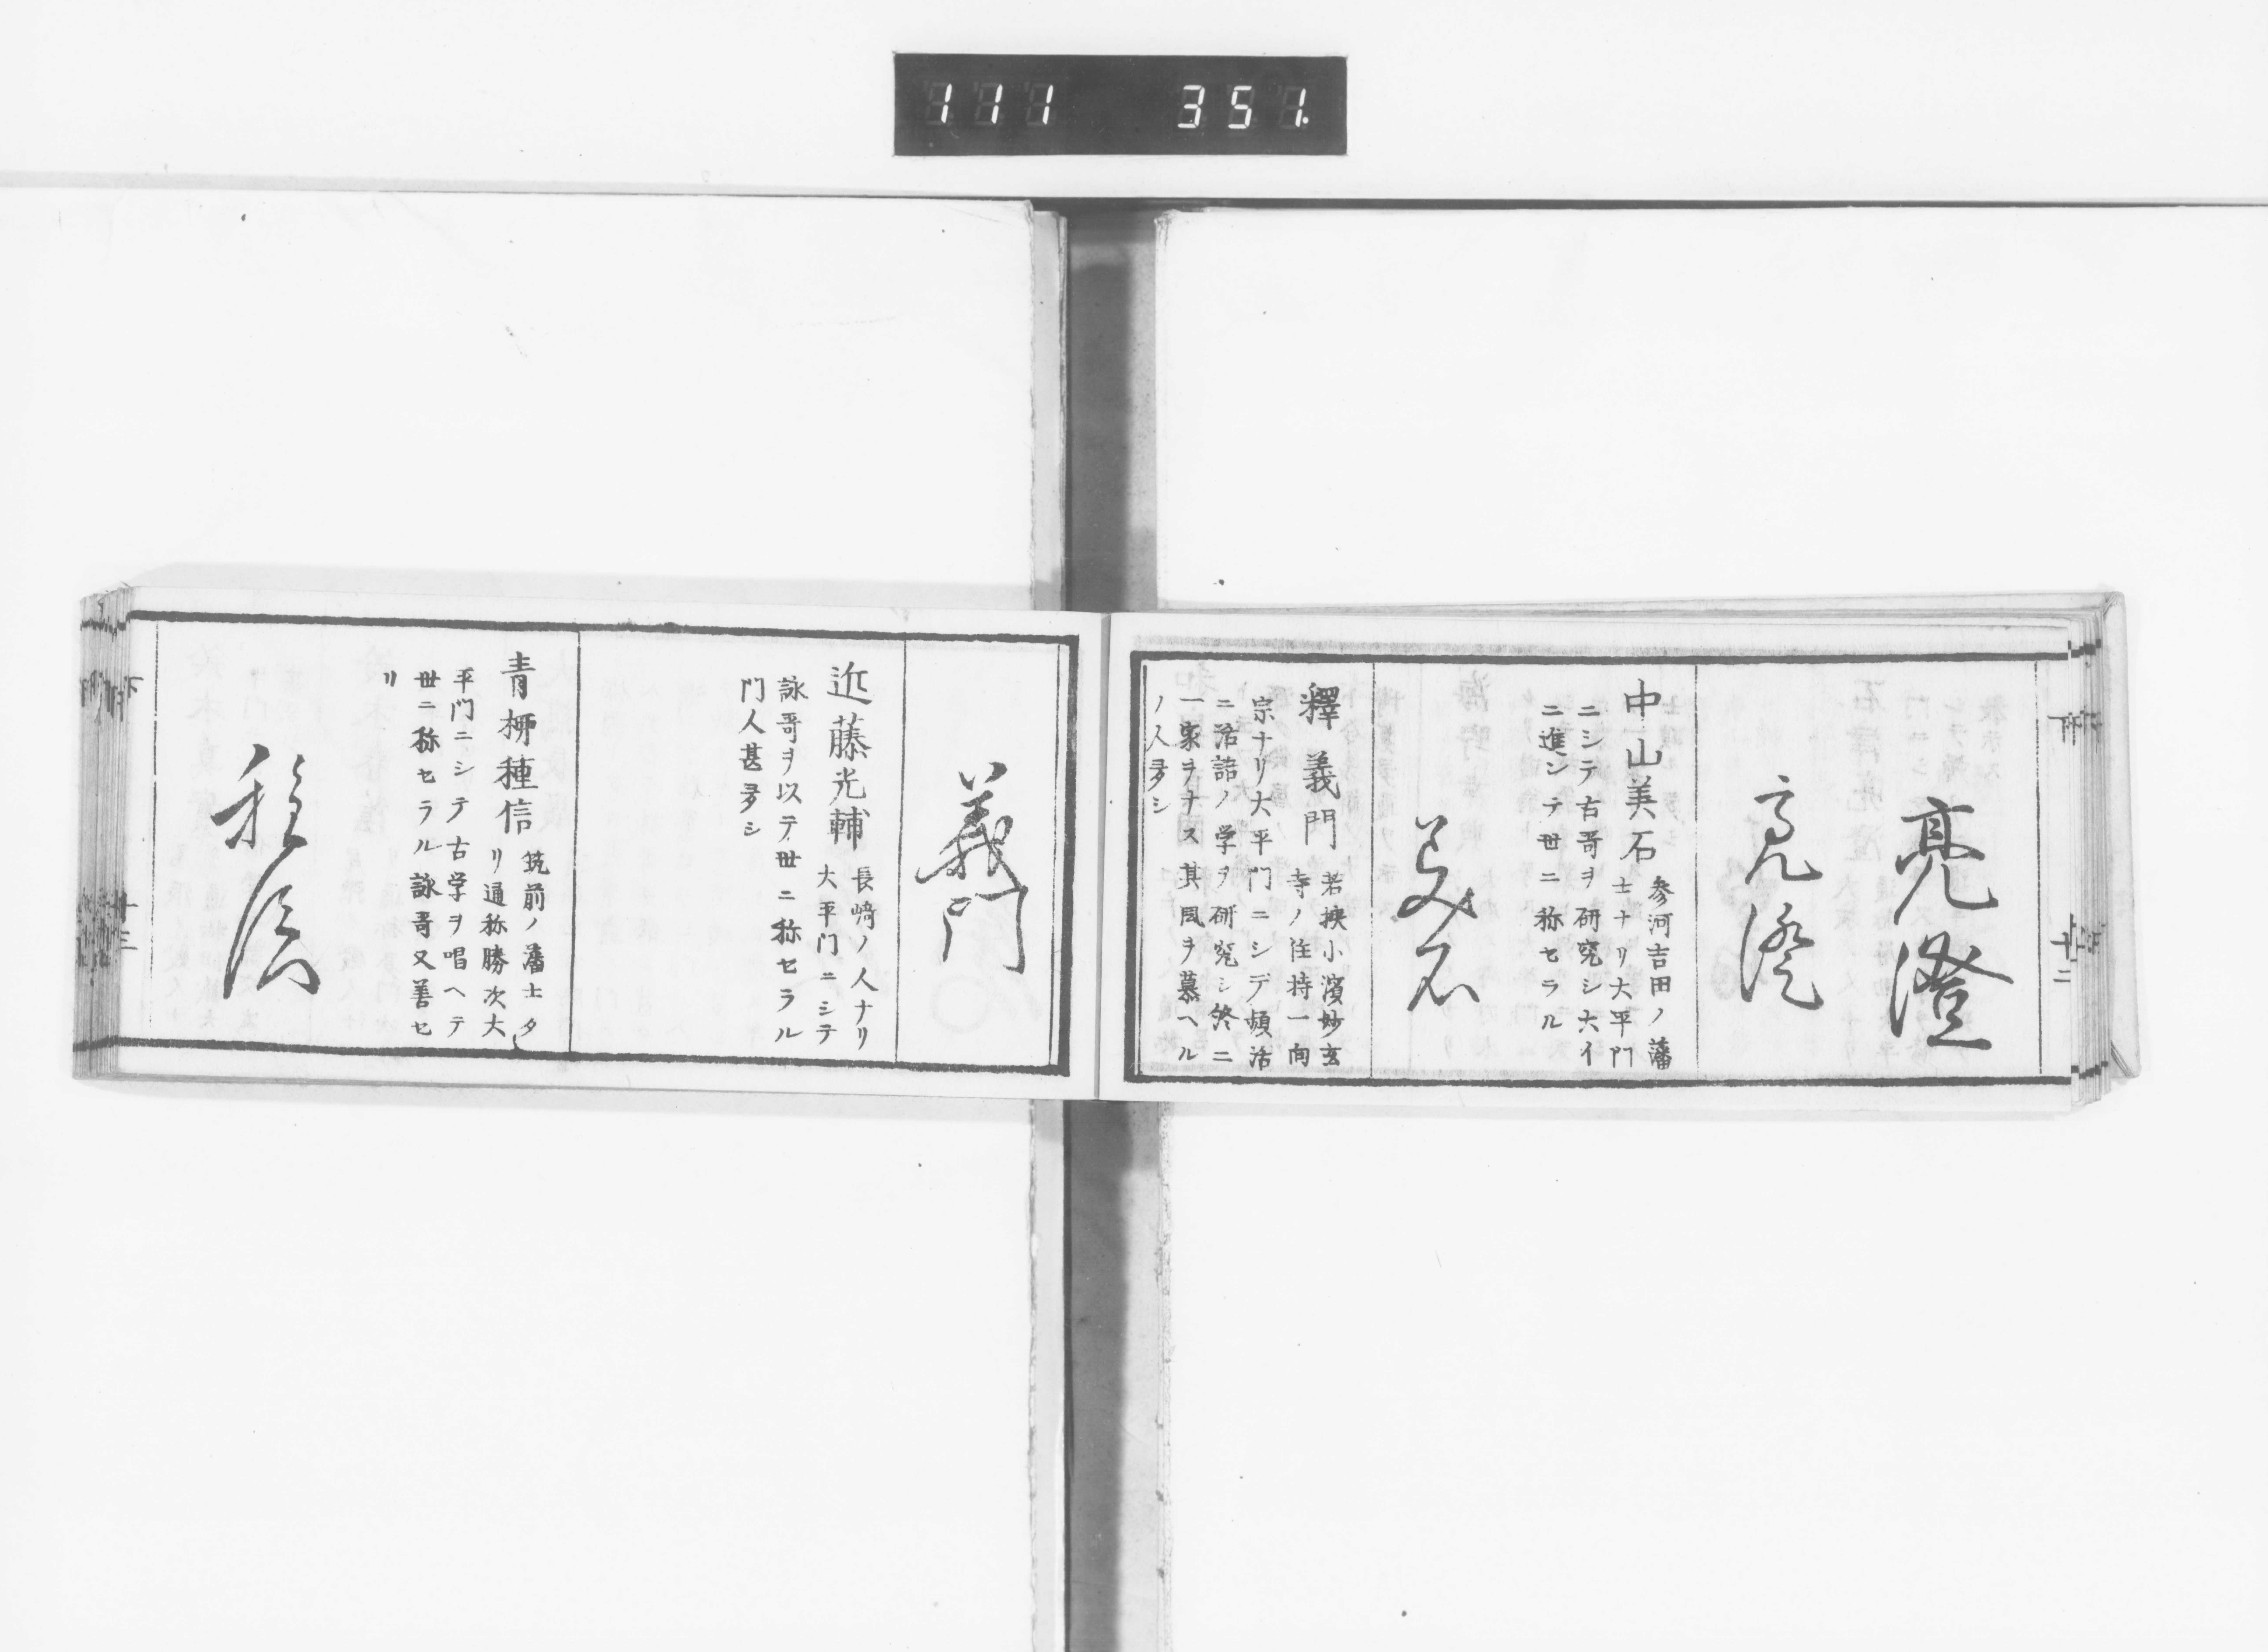 111 351.
亮澄
亮澄
中山美石 参河吉田ノ藩
士ナリ大平門
ニシテ古哥ヲ研究シ大イ
ニ進ンテ世ニ称セラル
美石
釋義門 若挾小濱妙玄
寺ノ住持一向
宗ナリ大平門ニシテ頗活
ニ活語ノ学ヲ研究シ終ニ
一家ヲナス其風ヲ慕ヘル
ノ人多シ
義門
近藤光輔 長﨑ノ人ナリ
大平門ニシテ
詠哥ヲ以テ世ニ称セラル
門人甚多シ
青栁種信 筑前ノ藩士タ
リ通称勝次大
平門ニシテ古学ヲ唱ヘテ
世ニ称セラル詠哥又善セ
リ
種信
下 十三